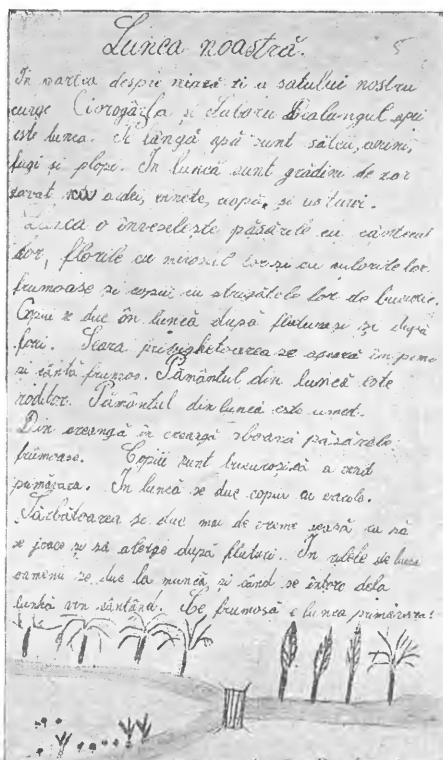 Lunca noastră. 5
In partea despre miază zi a satului nostru
curge Ciorogârla și Sabaru Dealungul apei
este lunca. Si lângă apă sunt sălcii, arini,
fugi si plopi. In luncă sunt grădini de zar
zavat cu ardei, vinete, ceapă, și usturoi.
Lunca o înveselește păsările cu cântecul
lor, florile cu mirosul lor și cu culorile lor
frumoase și copiii cu strigătele lor de bucurie.
Copiii se duc în luncă după fluturi și după
fori. Seara privighetoarea se așează în pomi
si cântă frumos. Pământul din luncă este
roditor. Pământul din luncă este umed.
Din creangă în creangă sboară păsărele
frumoase. Copiii sunt bucuroși că a venit
primăvara. In luncă se duc copiii cu vacile.
Sărbătoarea se duc mai de vreme acasă ca să
se joace și să alerge după fluturi. In zilele de lucru
oamenii se duc la muncă și când se întorc dela
luncă vin cântând. Ce frumosă e lunca primăvara!